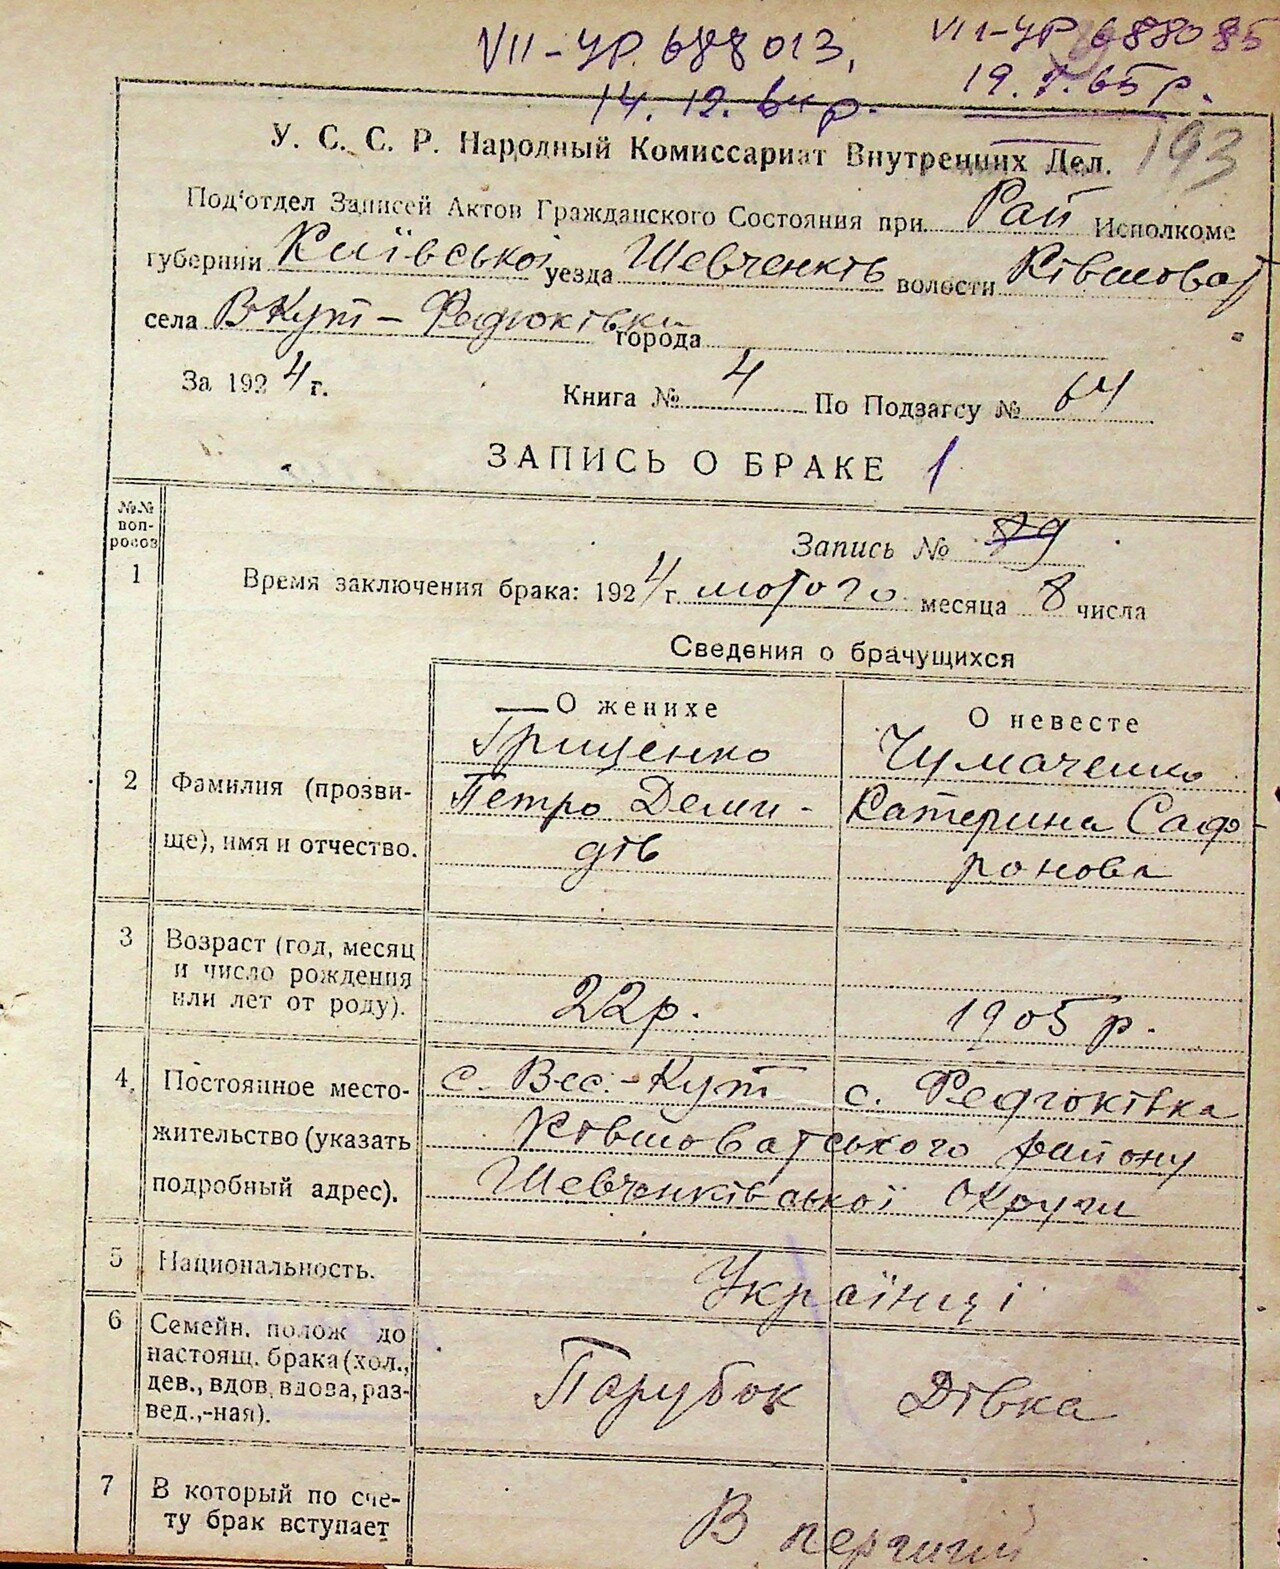 VII-УР 688013,
VII-УР 688085
14.12.64р.
19.7.65р.
193
У. С. С. Р. Народный Комиссариат Внутренних Дел.
Под'отдел Записей Актов Гражданского Состояния при Рай Исполкоме
губернии Київської уезда Шевченків волости Ківшоват
села В Кут - Федюківки города
За 1924 г. Книга № 4 По Подзагсу № 64
ЗАПИСЬ О БРАКЕ 1
№№ вопросов
Запись № 89
1 Время заключения брака: 1924 г. лютого месяца 8 числа
Сведения о брачущихся
О женихе О невесте
Грищенко Чумаченко
2 Фамилия (прозви- Петро Деми- Катерина Саф-
ще), имя и отчество. дів ронова
3 Возраст (год, месяц
и число рождения
или лет от роду). 22р. 1905 р.
4 Постоянное место- с. Вес.-Кут с. Федюківка
жительство (указать Ківшоватського району
подробный адрес). Шевченківської Округи
5 Национальность. Українці
6 Семейн. полож до
настоящ. брака (хол.,
дев., вдов, вдова, раз-
вед.,-ная). Парубок Дівка
7 В который по сче-
ту брак вступает В перший